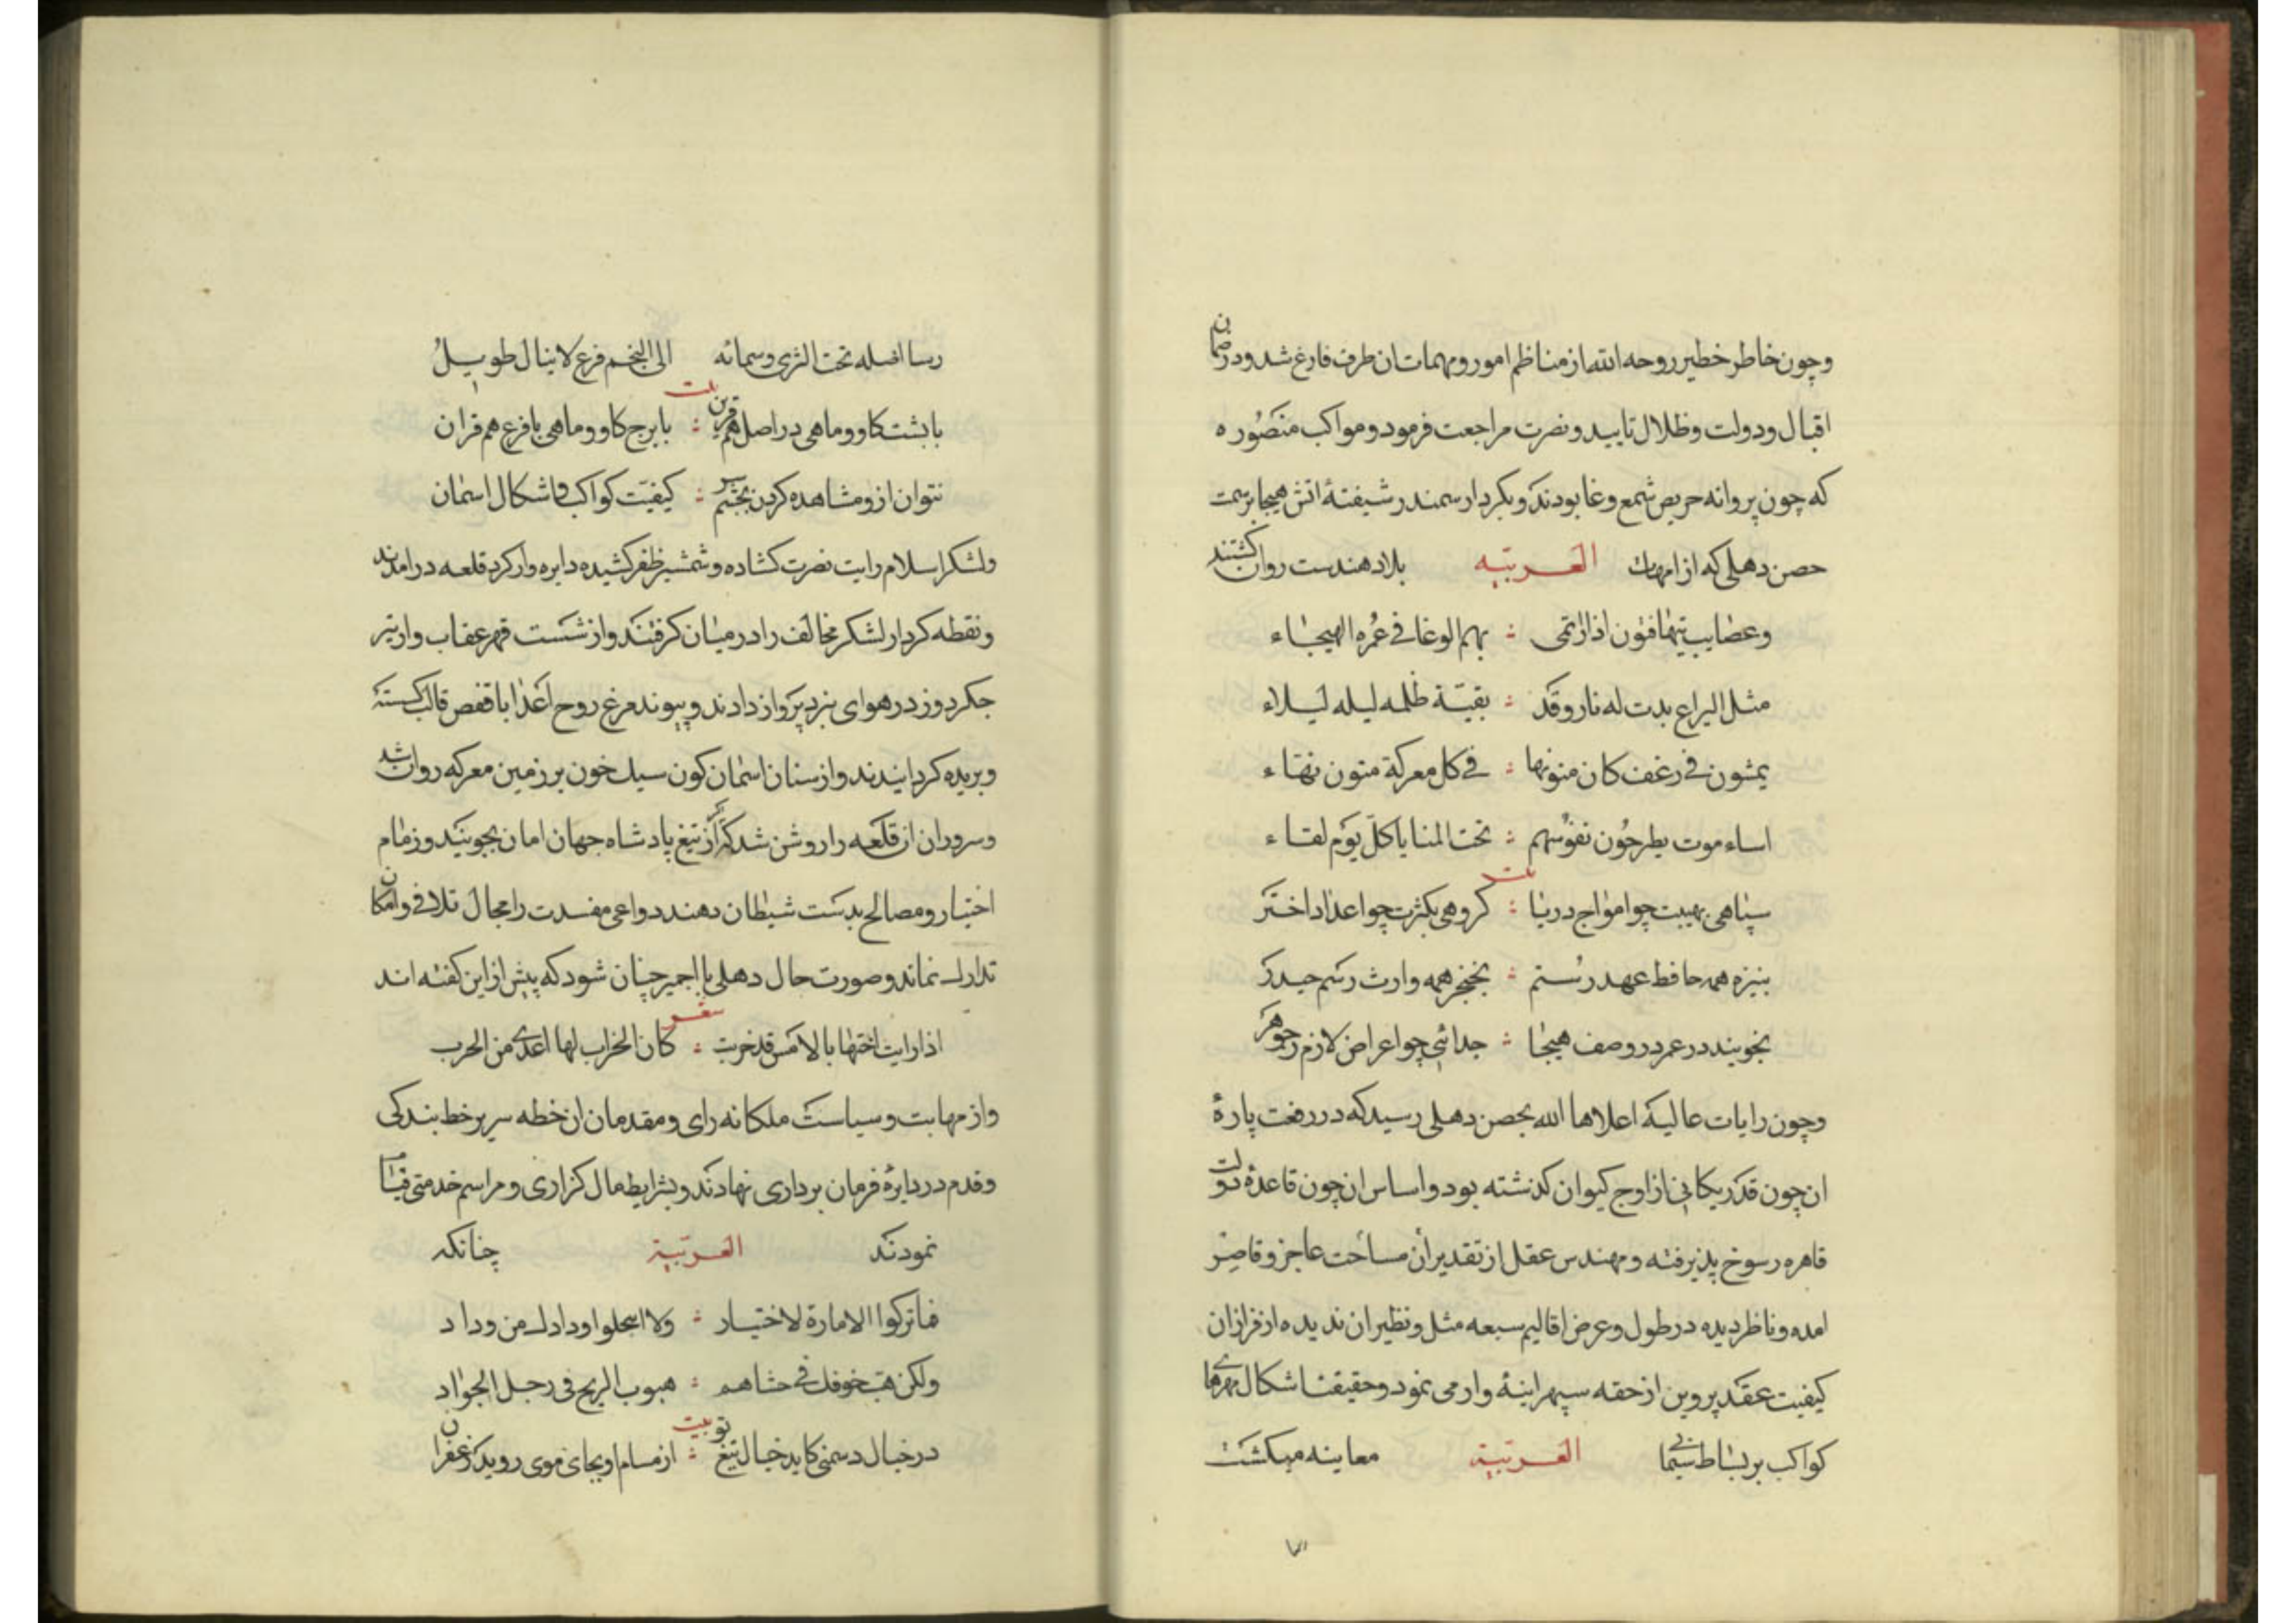 وچون خاطر خطیر روحه الله از مناظم امور و مهمات ان طرف فارغ شد ودر ضمان
اقبال ودولت وظلال تایید ونصرت مراجعت فرمود ومواکب منصوره
که چون پروانه حریص شمع وغا بودند وبکردار سمندر شیفتهٔ اتش هیجا برسمت
حصن دهلی که از امهات العربیه بلاد هندست روان کشتند
وعصایب یتهافتون اذا ارتمی : بهم الوغا فی غمره الهیجاء
مثل الیراع بدت له نار وقد : بقیة ظلمه لیله لیلاء
یمشون فی زغف کان متونها : فی کل معرکة متون نهاء
اساء موت یطرحون نفوسهم : تحت المنایا کل یوم لقاء
بیت
سپاهی بهیبت چو امواج دریا : کروهی بکثرت چو اعداد اختر
بنیزه همه حافظ عهد رستم : بخنجر همه وارث رسم حیدر
بجویند در عمر در وصف هیجا : جدائی چو اعراض لازم زجوهر
وچون رایات عالیه اعلاها الله بحصن دهلی رسید که در رفعت پارهٔ
ان چون قدر یکانی از اوج کیوان کذشته بود واساس ان چون قاعدهٔ دولت
قاهره رسوخ پذیرفته ومهندس عقل از تقدیر ان مساحت عاجز وقاصر
امده وناظر دیده در طول وعرض اقالیم سبعه مثل ونظیر ان ندیده از فراز ان
کیفیت عقد پروین از حقه سپهر اینهٔ وار می نمود وحقیقت اشکال مهرهای
کواکب بر بساط سیمابی العربیة معاینه میکشت
رسا اصله تحت الثری وسمائه الی النجم فرع لا ینال طویل
بیت
با پشت کاو وماهی در اصل هم قرین : با برج کاو وماهی با فرع هم قران
نتوان ازو مشاهده کردن بچشم سر : کیفیت کواکب واشکال اسمان
ولشکر اسلام رایت نصرت کشاده وشمشیر ظفر کشیده دایره وار کرد قلعه درامدند
ونقطه کردار لشکر مخالف را در میان کرفتند واز شست قهر عقاب وار تیر
جکر دوز در هوای نبرد پرواز دادند وپیوند مرغ روح اعدا با قفص قالب کسسته
وبریده کردانیدند واز سنان اسمان کون سیل خون بر زمین معرکه روان شد
وسروران ان قلعه را روشن شد که اکر از تیغ پادشاه جهان امان بجویند وزمام
اختیار ومصالح بدست شیطان دهند دواعی مفسدت را مجال تلافی وامکان
تدارک نماند وصورت حال دهلی با اجمیر چنان شود که پیش از این کفته اند
شعر
اذا رایت اختها بالامس قد خربت : کان الخراب لها اعدی من الجرب
واز مهابت وسیاست ملکانه رای ومقدمان ان خطه سر بر خط بندکی
وقدم در دایرهٔ فرمان برداری نهادند وبشرایط مال کزاری ومراسم خدمتی قیام
نمودند العربیة چنانکه
فما ترکوا الامارة لاختیار : ولا انتحلوا ودادک من وداد
ولکن هب خوفک فی حشاهم : هبوب الریح فی رجل الجواد
بیت
در خیال دشمنی کاید خیال تیغ تو : از مسام او بجای موی روید زعفران